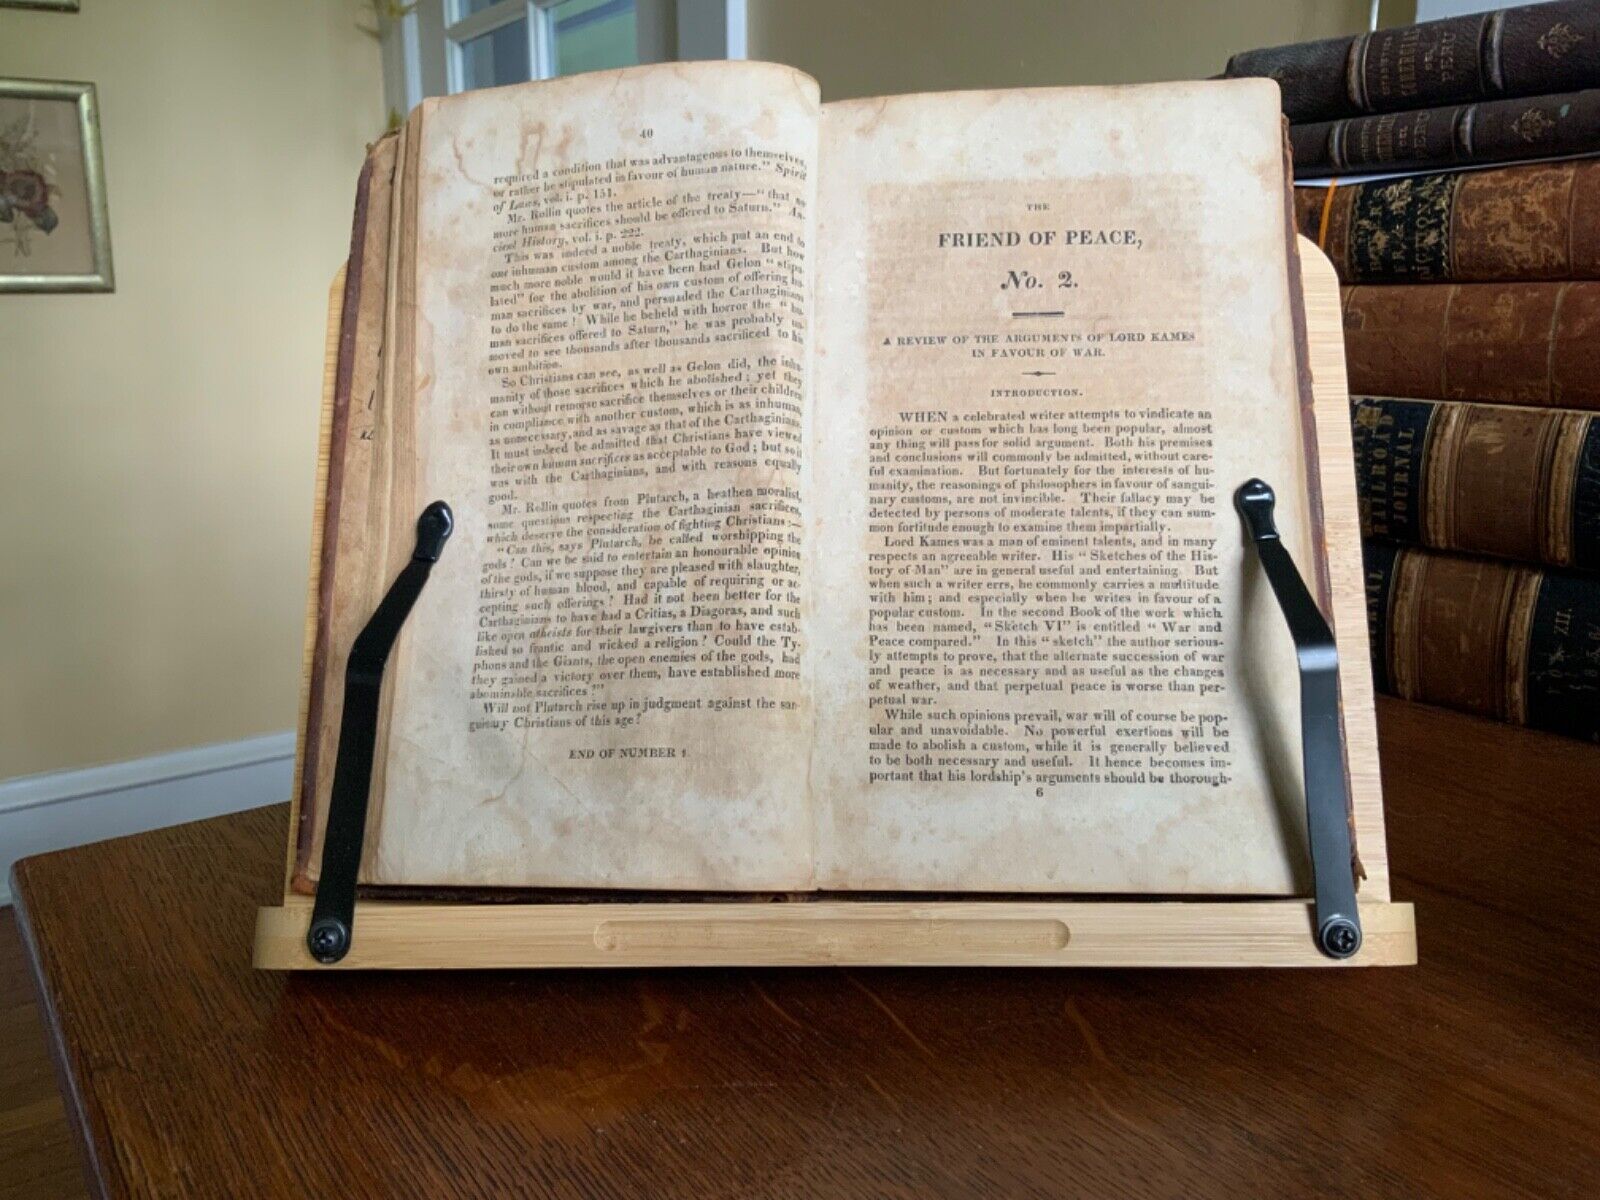 40
required a condition that was advantageous to themselves,
or rather he stipulated in favour of human nature." Spirit
of Laws, vol. i. p. 151.
Mr. Rollin quotes the article of the treaty—"that no
more human sacrifices should be offered to Saturn." An-
cient History, vol. i. p. 222.
This was indeed a noble treaty, which put an end to
one inhuman custom among the Carthaginians. But how
much more noble would it have been had Gelon "stipu-
lated" for the abolition of his own custom of offering hu-
man sacrifices by war, and persuaded the Carthaginians
to do the same! While he beheld with horror the "hu-
man sacrifices offered to Saturn," he was probably un-
moved to see thousands after thousands sacrificed to his
own ambition.
So Christians can see, as well as Gelon did, the inhu-
manity of those sacrifices which he abolished; yet they
can without remorse sacrifice themselves or their children
in compliance with another custom, which is as inhuman,
as unnecessary, and as savage as that of the Carthaginians.
It must indeed be admitted that Christians have viewed
their own human sacrifices as acceptable to God; but so it
was with the Carthaginians, and with reasons equally
good.
Mr. Rollin quotes from Plutarch, a heathen moralist,
some questions respecting the Carthaginian sacrifices,
which deserve the consideration of fighting Christians:—
"Can this, says Plutarch, be called worshipping the
gods? Can we be said to entertain an honourable opinion
of the gods, if we suppose they are pleased with slaughter,
thirsty of human blood, and capable of requiring or ac-
cepting such offerings? Had it not been better for the
Carthaginians to have had a Critias, a Diagoras, and such
like open atheists for their lawgivers than to have estab-
lished so frantic and wicked a religion? Could the Ty-
phons and the Giants, the open enemies of the gods, had
they gained a victory over them, have established more
abominable sacrifices?"
Will not Plutarch rise up in judgment against the san-
guinary Christians of this age?
END OF NUMBER 1.
THE
FRIEND OF PEACE,
No. 2.
A REVIEW OF THE ARGUMENTS OF LORD KAMES
IN FAVOUR OF WAR.
INTRODUCTION.
WHEN a celebrated writer attempts to vindicate an
opinion or custom which has long been popular, almost
any thing will pass for solid argument. Both his premises
and conclusions will commonly be admitted, without care-
ful examination. But fortunately for the interests of hu-
manity, the reasonings of philosophers in favour of sangui-
nary customs, are not invincible. Their fallacy may be
detected by persons of moderate talents, if they can sum-
mon fortitude enough to examine them impartially.
Lord Kames was a man of eminent talents, and in many
respects an agreeable writer. His "Sketches of the His-
tory of Man" are in general useful and entertaining. But
when such a writer errs, he commonly carries a multitude
with him; and especially when he writes in favour of a
popular custom. In the second Book of the work which
has been named, "Sketch VI" is entitled "War and
Peace compared." In this "sketch" the author serious-
ly attempts to prove, that the alternate succession of war
and peace is as necessary and as useful as the changes
of weather, and that perpetual peace is worse than per-
petual war.
While such opinions prevail, war will of course be pop-
ular and unavoidable. No powerful exertions will be
made to abolish a custom, while it is generally believed
to be both necessary and useful. It hence becomes im-
portant that his lordship's arguments should be thorough-
6
PERU
PERU
RAILROAD
JOURNAL
XII.